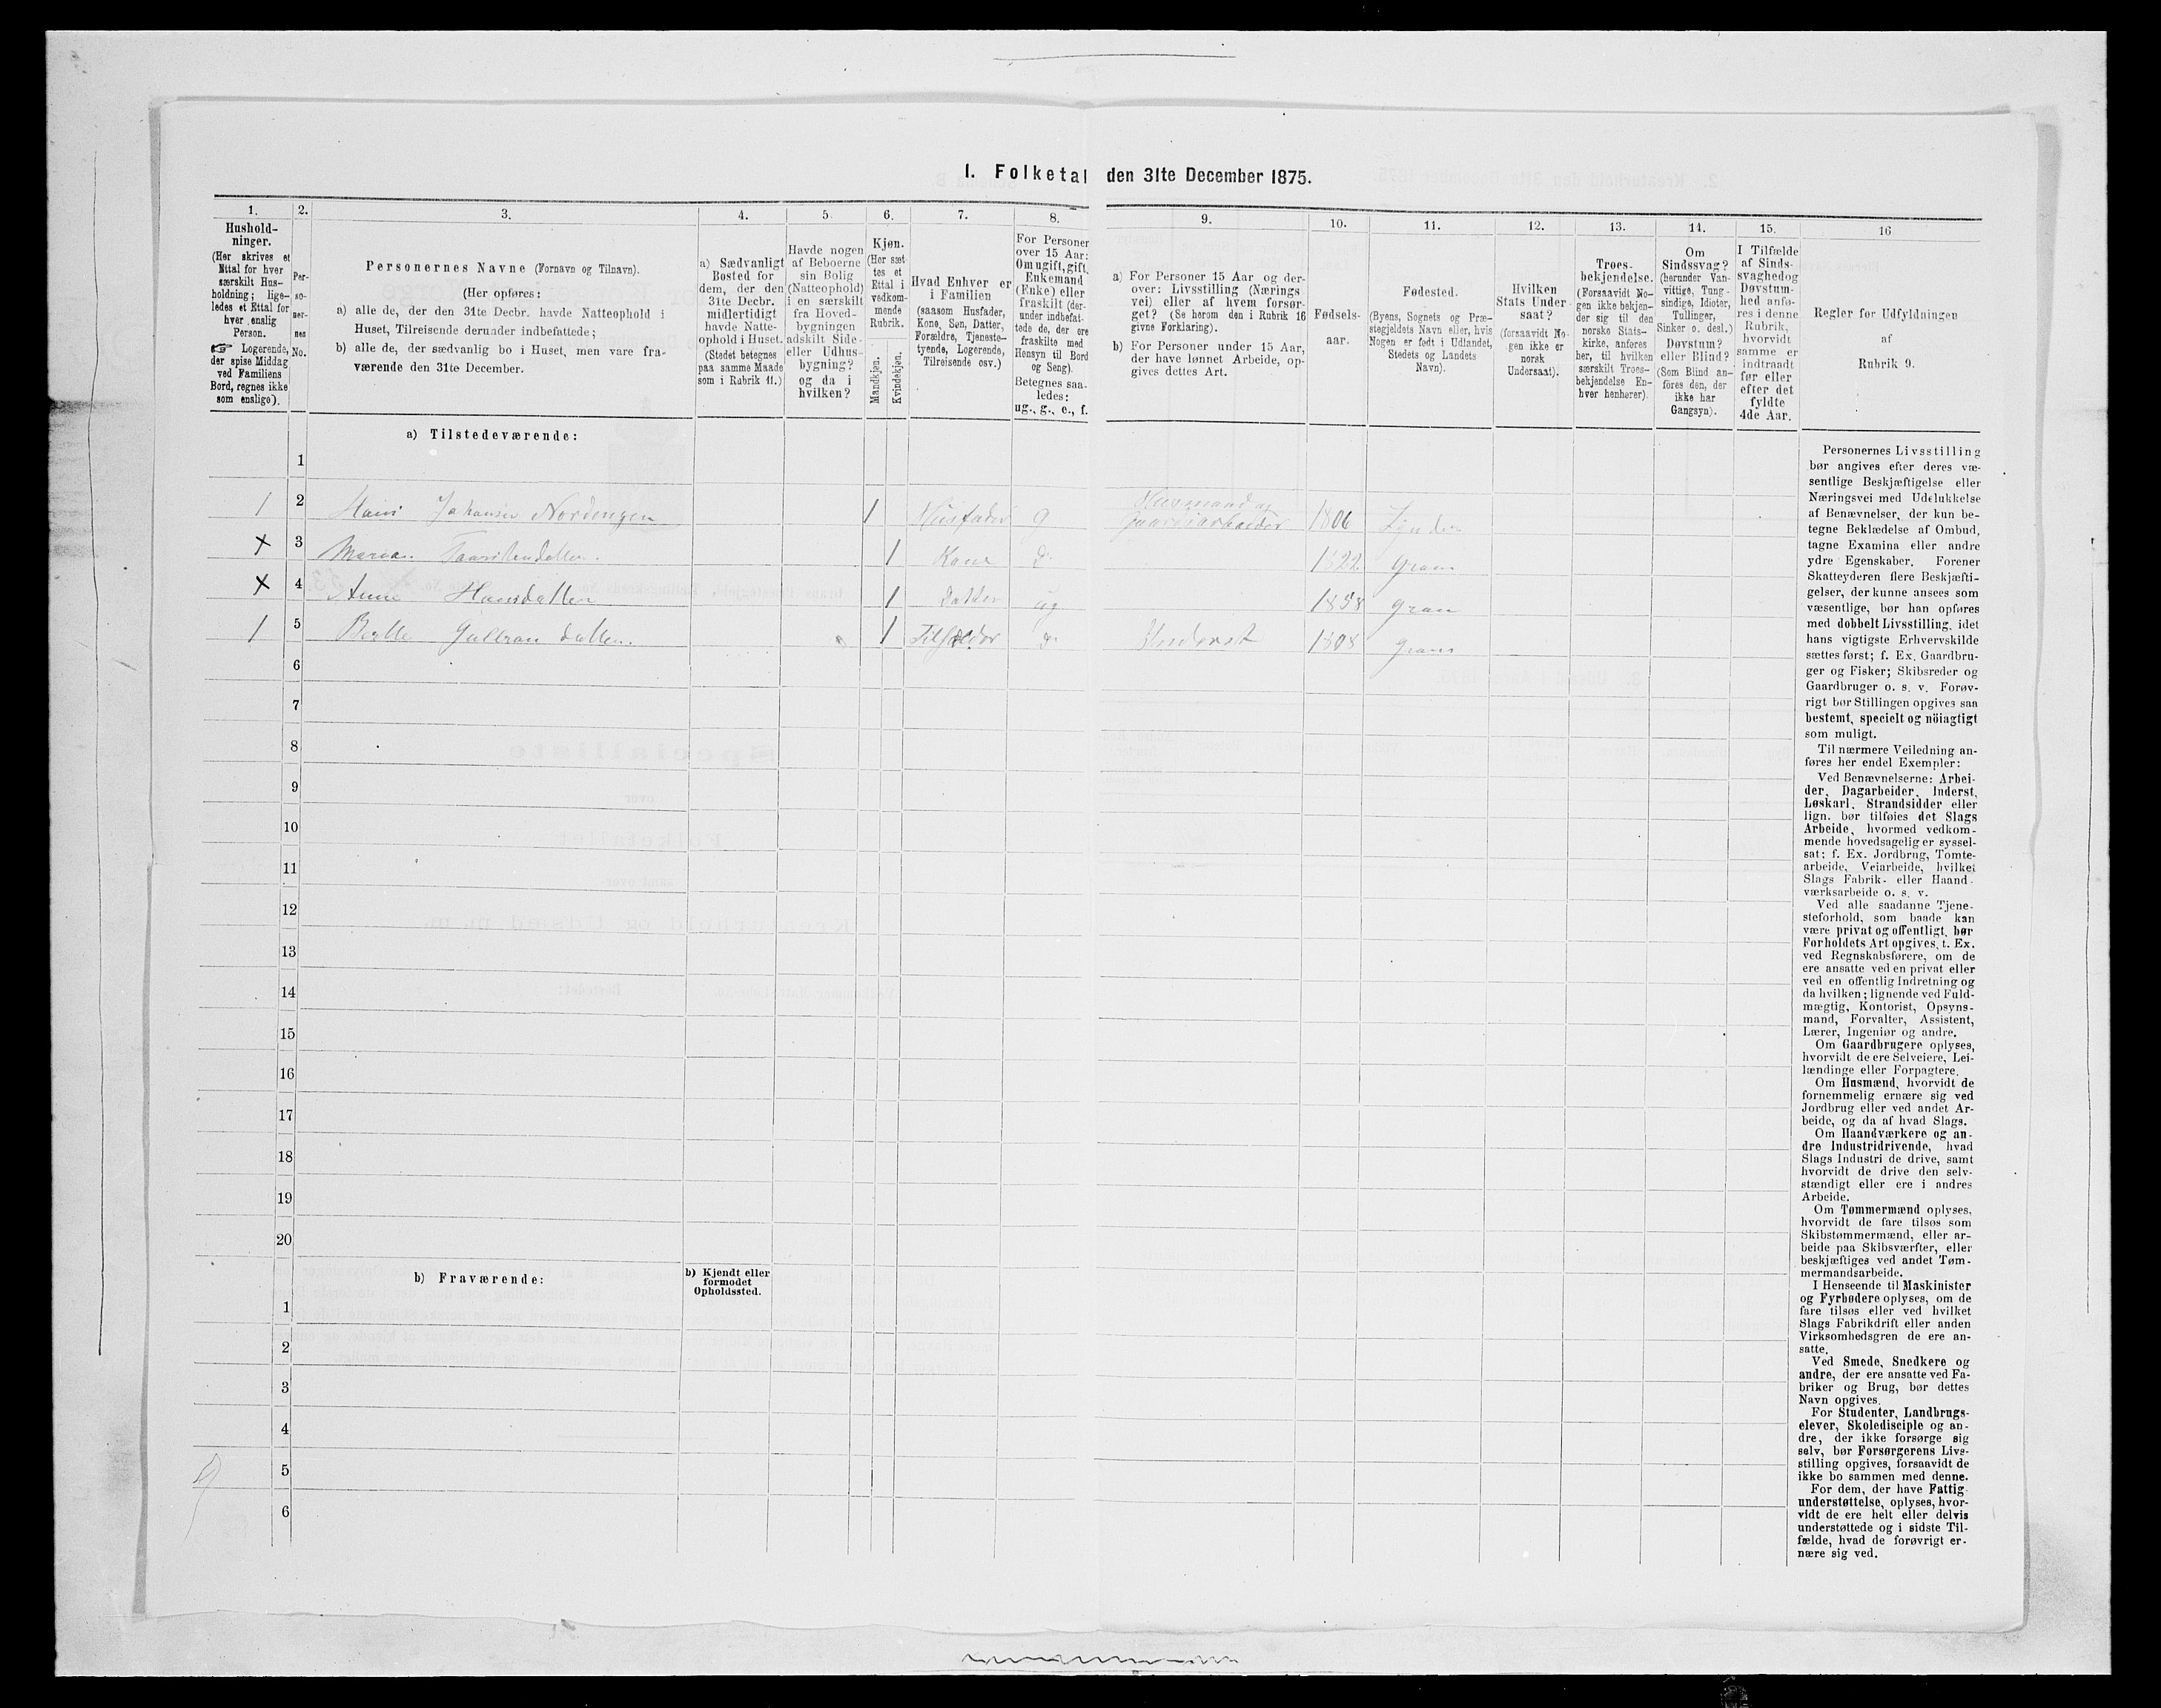 I. Folketal den 31te December 1875.
1.
Hushold-
ninger.
(Her skrives et
Ettal for hver
særskilt Hus-
holdning; lige-
ledes et Ettal for
hver enslig
Person.
☞ Logerende,
der spise Middag
ved Familiens
Bord, regnes ikke
som enslige).
2.
Per-
so-
ner-
nes
No.
3.
Personernes Navne (Fornavn og Tilnavn).
(Her opføres:
a) alle de, der den 31te Decbr. havde Natteophold i
Huset, Tilreisende derunder indbefattede;
b) alle de, der sædvanlig bo i Huset, men vare fra-
værende den 31te December.
4.
a) Sædvanligt
Bosted for
dem, der den
31te Decbr.
midlertidigt
havde Natte-
ophold i Huset.
(Stedet betegnes
paa samme Maade
som i Rubrik 11.)
5.
Havde nogen
af Beboerne
sin Bolig
(Natteophold)
i en særskilt
fra Hoved-
bygningen
adskilt Side-
eller Udhus-
bygning?
og da i
hvilken?
6.
Kjøn.
(Her sæt
tes et
Ettal i
vedkom-
mende
Rubrik.
Mandkjøn.
Kvindekjøn.
7.
Hvad Enhver er
i Familien
(saasom Husfader,
Kone, Søn, Datter,
Forældre, Tjeneste-
tyende, Logerende,
Tilreisende osv.)
8.
For Personer
over 15 Aar:
Om ugift, gift,
Enkemand
(Enke) eller
fraskilt (der-
under indbefat-
tede de, der ere
fraskilte med
Hensyn til Bord
og Seng).
Betegnes saa-
ledes:
ug., g., e., f.
9.
a) For Personer 15 Aar og der-
over: Livsstilling (Nærings
vei) eller af hvem forsør-
get? (Se herom den i Rubrik 16
givne Forklaring).
b) For Personer under 15 Aar,
der have lønnet Arbeide, op-
gives dettes Art.
10.
Fødsels-
aar.
11.
Fødested.
(Byens, Sognets og Præ-
stegjeldets Navn eller, hvis
Nogen er født i Udlandet,
Stedets og Landets
Navn).
12.
Hvilken
Stats Under
saat?
(forsaavidt No-
gen ikke er
norsk
Undersaat).
13.
Troes-
bekjendelse.
(Forsaavidt No-
gen ikke bekjen-
der sig til den
norske Stats-
kirke, anføres
her, til hvilken
særskilt Troes-
bekjendelse En-
hver henhører).
14.
Om
Sindssvag?
(herunder Van-
vittige, Tung-
sindige, Idioter,
Tullinger,
Sinker o. desl.)
Døvstum?
eller Blind?
(Som Blind an-
føres den, der
ikke har
Gangsyn).
15.
I Tilfælde
af Sinds-
svaghed og
Døvstum-
hed anfø-
res i denne
Rubrik,
hvorvidt
samme er
indtraadt
før eller
efter det
fyldte
4de Aar.
16
Regler for Udfyldningen
af
Rubrik 9.
a) Tilstedeværende:
1
1 2 Hans Johansen Nordengen 1 Husfader g Husmand og
gaardsarbeider 1806
× 3 Maria 1 Kone d. 1822 Gran
× 4 Anne Hansdatter 1 Datter ug 1858 Gran
1 5 1 d. Inderst 1808 Gran
6
7
8
9
10
11
12
13
14
15
16
17
18
19
20
b) Fraværende:
b) Kjendt eller
formodet
Opholdssted.
1
2
3
4
5
6
Personernes Livsstilling
bør angives efter deres væ-
sentlige Beskjæftigelse eller
Næringsvei med Udelukkelse
af Benævnelser, der kun be-
tegne Beklædelse af Ombud,
tagne Examina eller andre
ydre Egenskaber. Forener
Skatteyderen flere Beskjæfti-
gelser, der kunne ansees som
væsentlige, bør han opføres
med dobbelt Livsstilling, idet
hans vigtigste Erhvervskilde
sættes først; f. Ex. Gaardbru-
ger og Fisker; Skibsreder og
Gaardbruger o. s. v. Forøv-
rigt bør Stillingen opgives saa
bestemt, specielt og nöiagtigt
som muligt.
Til nærmere Veiledning an-
føres her endel Exempler:
Ved Benævnelserne: Arbei-
der, Dagarbeider, Inderst,
Løskarl, Strandsidder eller
lign. bør tilføies det Slags
Arbeide, hvormed vedkom-
mende hovedsagelig er syssel-
sat; f. Ex. Jordbrug, Tomte-
arbeide, Veiarbeide, hvilket
Slags Fabrik- eller Haand-
værksarbeide o. s. v.
Ved alle saadanne Tjene-
steforhold, som baade kan
være privat og offentligt, bør
Forholdets Art opgives, t. Ex.
ved Regnskabsførere, om de
ere ansatte ved en privat eller
ved en offentlig Indretning og
da hvilken; lignende ved Fuld-
mægtig, Kontorist, Opsyns-
mand, Forvalter, Assistent,
Lærer, Ingeniør og andre.
Om Gaardbrugere oplyses,
hvorvidt de ere Selveiere, Lei-
lændinge eller Forpagtere.
Om Husmænd, hvorvidt de
fornemmelig ernære sig ved
Jordbrug eller ved andet Ar-
beide, og da af hvad Slags.
Om Haandværkere og an-
dre Industridrivende, hvad
Slags Industri de drive, samt
hvorvidt de drive den selv-
stændigt eller ere i andres
Arbeide.
Om Tømmermænd oplyses,
hvorvidt de fare tilsøs som
Skibstømmermænd, eller ar-
beide paa Skibsværfter, eller
beskjæftiges ved andet Tøm-
mermandsarbeide.
I Henseende til Maskinister
og Fyrbødere oplyses, om de
fare tilsøs eller ved hvilket
Slags Fabrikdrift eller anden
Virksomhedsgren de ere an-
satte.
Ved Smede, Snedkere og
andre, der ere ansatte ved Fa-
briker og Brug, bør dettes
Navn opgives.
For Studenter, Landbrugs-
elever, Skoledisciple og an-
dre, der ikke forsørge sig
selv, bør Forsørgerens Livs-
stilling opgives, forsaavidt de
ikke bo sammen med denne.
For dem, der have Fattig-
understøttelse, oplyses, hvor-
vidt de ere helt eller delvis
understøttede og i sidste Til-
fælde, hvad de forøvrigt er-
nære sig ved.